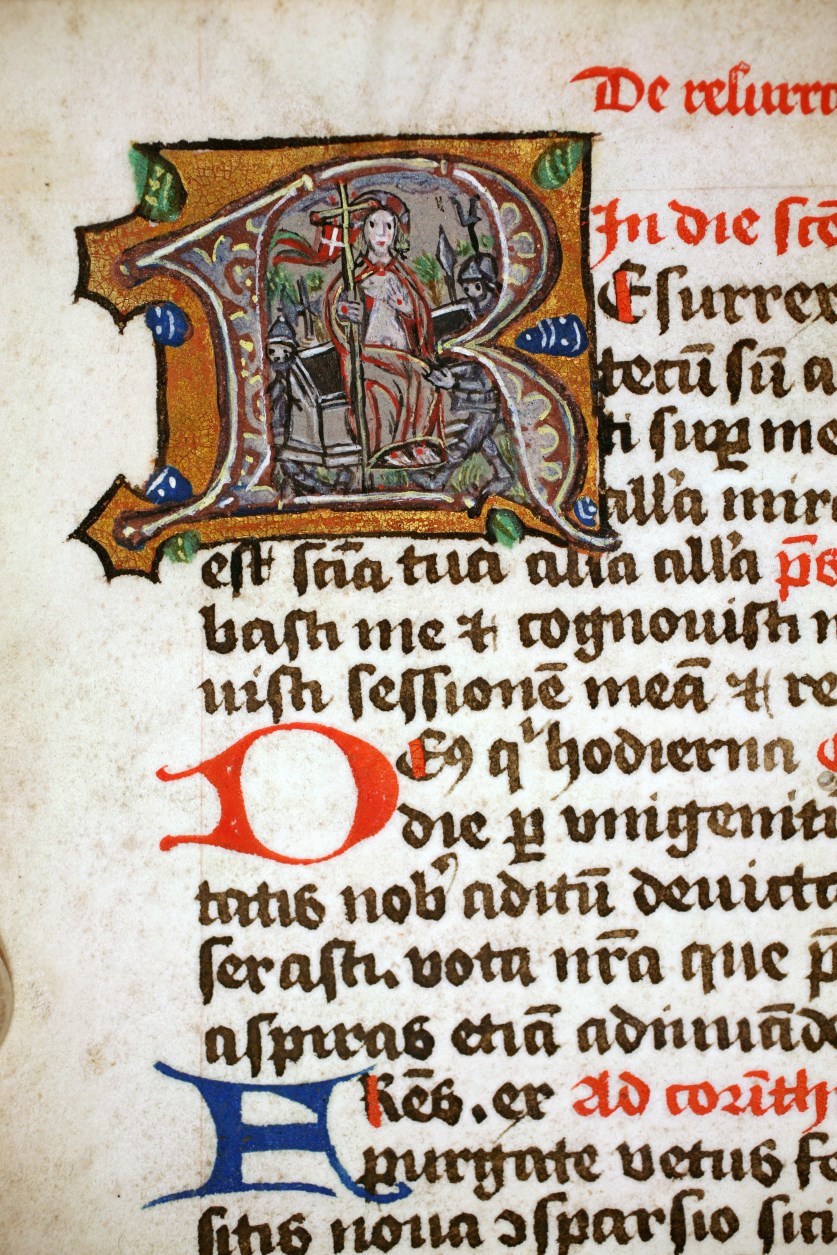 De resurre
In die scē
REsurrex
tecū sū a
ti sup me
all'a mir
est scīa tua all'a all'a ps
basti me ⁊ cognouisti
uisti sessionē meā ⁊ re
DEꝰ qⁱ hodierna
die ꝑ vnigenitū
tatis nob' aditū deuicta
serasti. vota nr̄a que p̄
aspiras etiā adiuuādo
Frēs. ex Ad corīth
purgate vetus fe
sitis noua ↄsparsio sicu